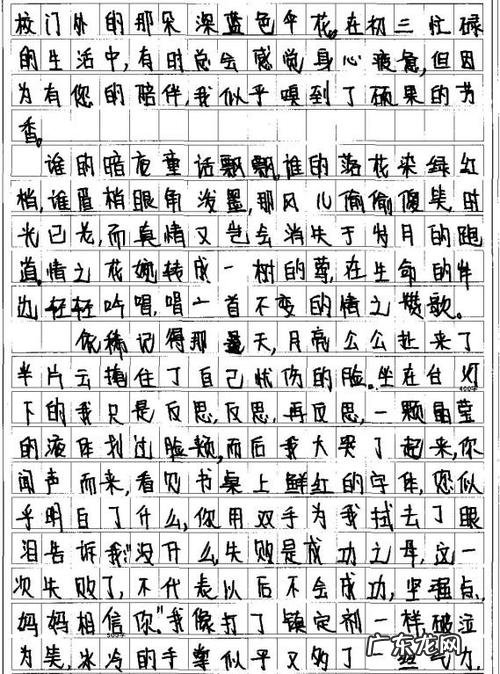 校门外的那朵深蓝色伞花。在初三忙碌
的生活中,有时总会感觉身心疲惫,但因
为有您的陪伴,我似乎嗅到了硕果的芳
香。
谁的暗夜童话飘飘,谁的落花染绿红
梢,谁眉梢眼角泼墨,那风儿偷偷傻笑,时
光已老,而真情又岂会消失于岁月的跑
道。情之花婉转成一树的尊,在生命的岸
边轻轻吟唱,唱一首不变的情之赞歌。
依稀记得那是天,月亮公公赴来了
半片云掩住了自己忧伤的脸。坐在台灯
下的我只是反思,反思,再反思,一颗晶莹
的液体划过脸颊,而后我大哭了起来,你
闻声而来,看见书桌上鲜红的字体,您似
乎明白了什么,你用双手为我拭去了眼
泪告诉我:"没什么,失败是成功之母,这一
次失败了,不代表以后不会成功,坚强点,
妈妈相信你"我像打了镇定剂一样破泣
为笑,冰冷的手掌似乎又够了一丝气力,
广东龙网